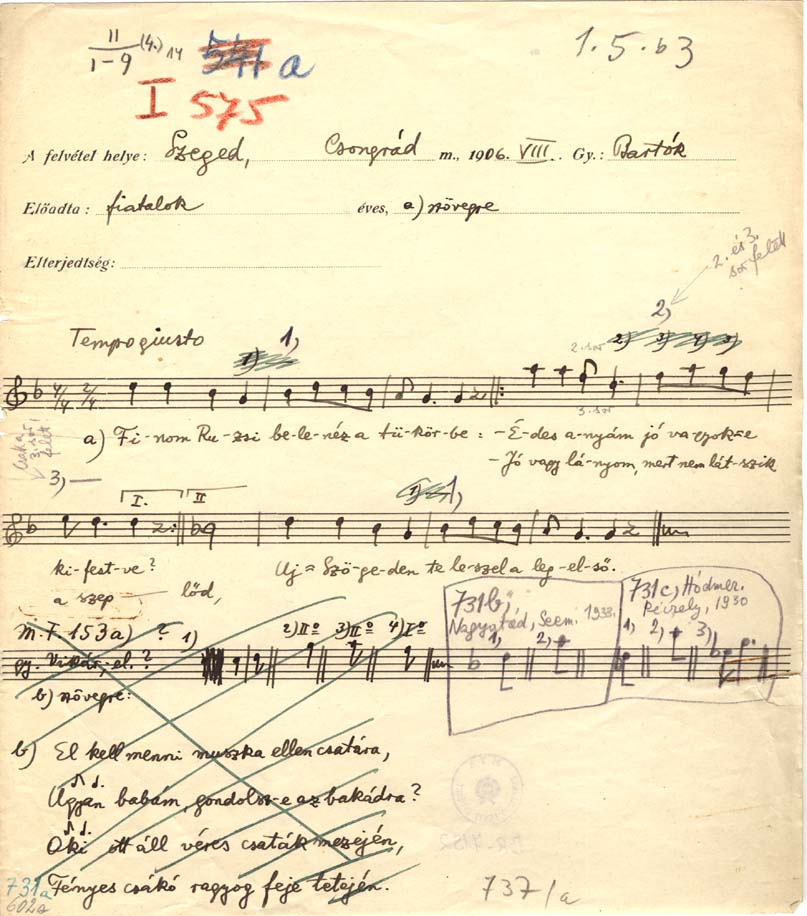 II (4.) 14
1-9
541 a
I 575
1.5.63
A felvétel helye: Szeged, Csongrád m., 1906. VIII. Gy.: Bartók
Előadta: fiatalok éves, a) szövegre
Elterjedtség:
2. és 3. sor felett
Tempo giusto 1) 1, 2,
2. sor 2) 3) 4) 3)
4/4 2/4
3. sor
a) Fi-nom Ru-zsi be-le-néz a tü-kör-be: -É-des a-nyám jó va-gyok-e
-Jó vagy lá-nyom, mert nem lát-szik
Csak a 3. sor felett
3,
I. II 1) 1,
ki-fest-ve? Uj=Szö-ge-den te le-szel a leg-el-ső.
a szep lőd,
M.F. 153a) ? 1) 2) IIº 3) IIº 4) Iº
gy. Vikár, el. ?
b) szövegre:
731b,
Nagystád, Seem. 1933.
1, 2,
731c, Hódmer.
Péczely, 1930
1, 2, 3,
b) El kell menni muszka ellen csatára,
Ugyan babám, gondolsz-e az bakádra?
Aki ott áll véres csaták mezején,
Fényes csákó ragyog feje tetején.
731a
602a
737/a